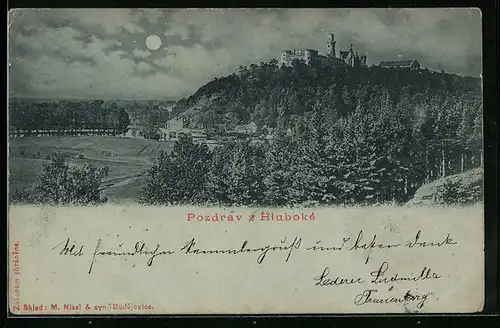 Pozdrav z Hluboké
Mit freundlichen Sammlergruß und besten Dank
Lederer Ludmilla
Frauenberg
Zákonem chráněno.
Sklad: M. Nissl & syn, Budějovice.